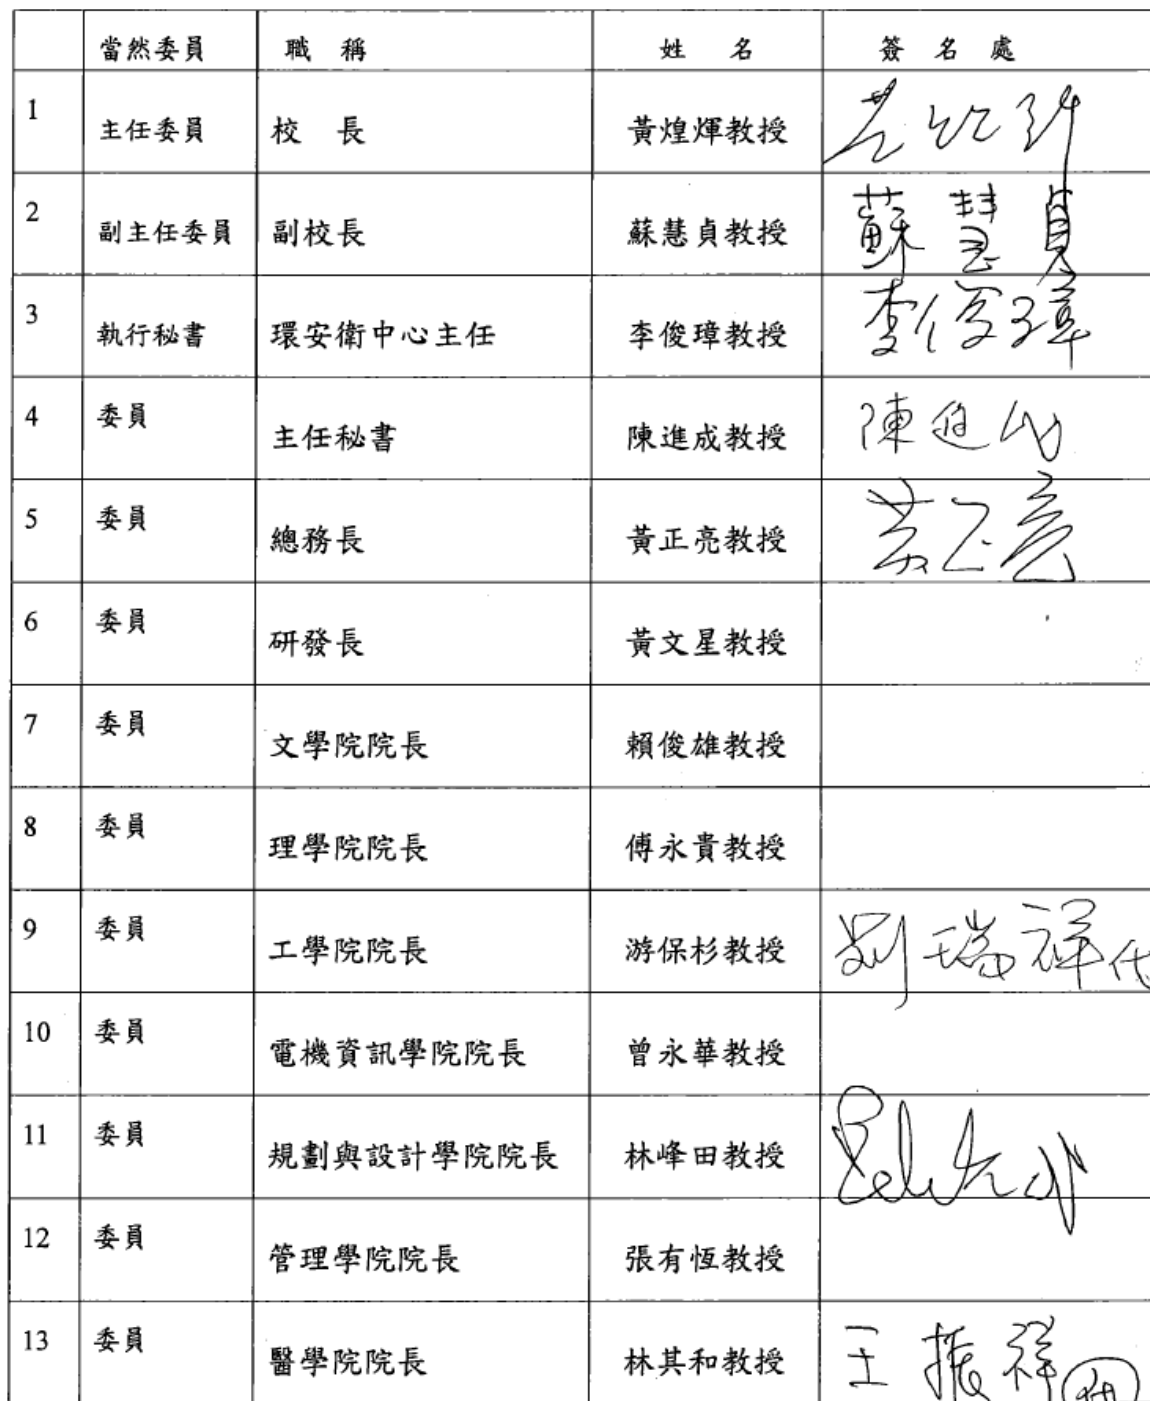 當然委員 職 稱 姓 名 簽 名 處
1 主任委員 校 長 黃煌煇教授
2 副主任委員 副校長 蘇慧貞教授 蘇慧貞
3 執行秘書 環安衛中心主任 李俊璋教授 李俊璋
4 委員 主任秘書 陳進成教授 陳進成
5 委員 總務長 黃正亮教授 黃正亮
6 委員 研發長 黃文星教授
7 委員 文學院院長 賴俊雄教授
8 委員 理學院院長 傅永貴教授
9 委員 工學院院長 游保杉教授 劉瑞祥代
10 委員 電機資訊學院院長 曾永華教授
11 委員 規劃與設計學院院長 林峰田教授
12 委員 管理學院院長 張有恆教授
13 委員 醫學院院長 林其和教授 王振祥